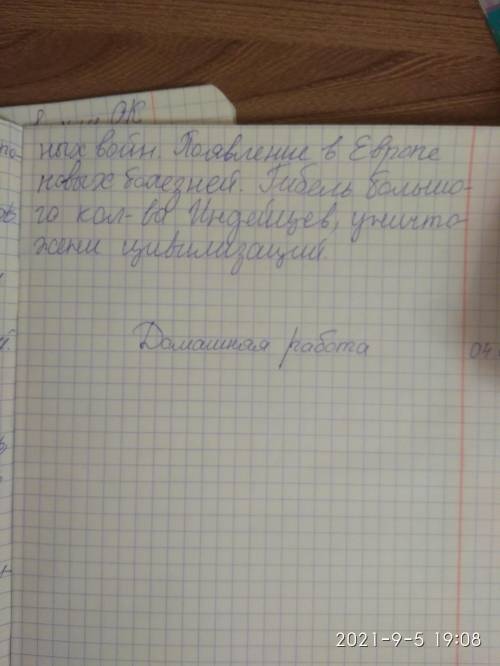 ОК
ных войн. Появление в Европе
новых болезней. Гибель большо-
го кол-ва Индейцев, уничто-
жени цивилизаций.
Домашная работа
04
2021-9-5 19:08